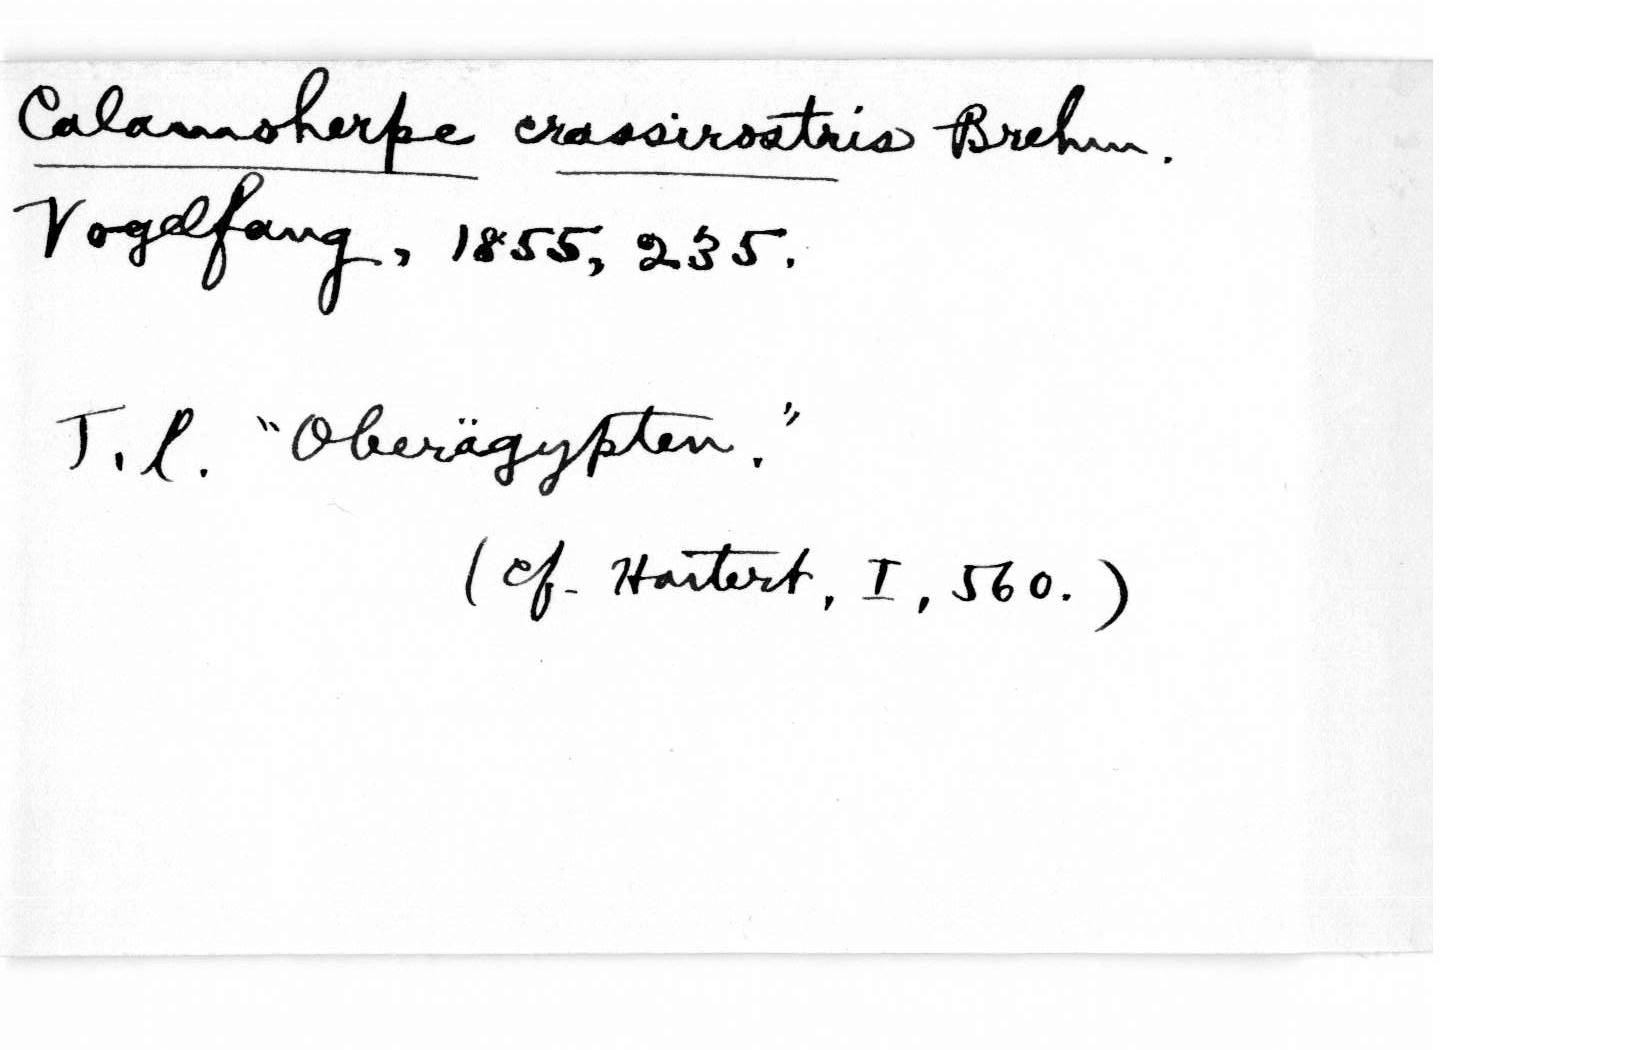 Calamoherpe crassirostris Brehm.
Vogelfang, 1855, 235.
T. l. "Oberägypten."
(cf. Hartert, I, 560.)